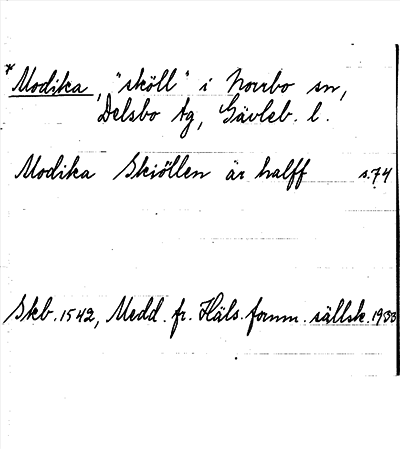 *Modika, "sköll" i Norrbo sn,
Delsbo tg, Gävleb. l.
Modika Skiöllen är halff s.74
Skb. 1542, Medd. fr. Häls. fornm. sällsk. 1933